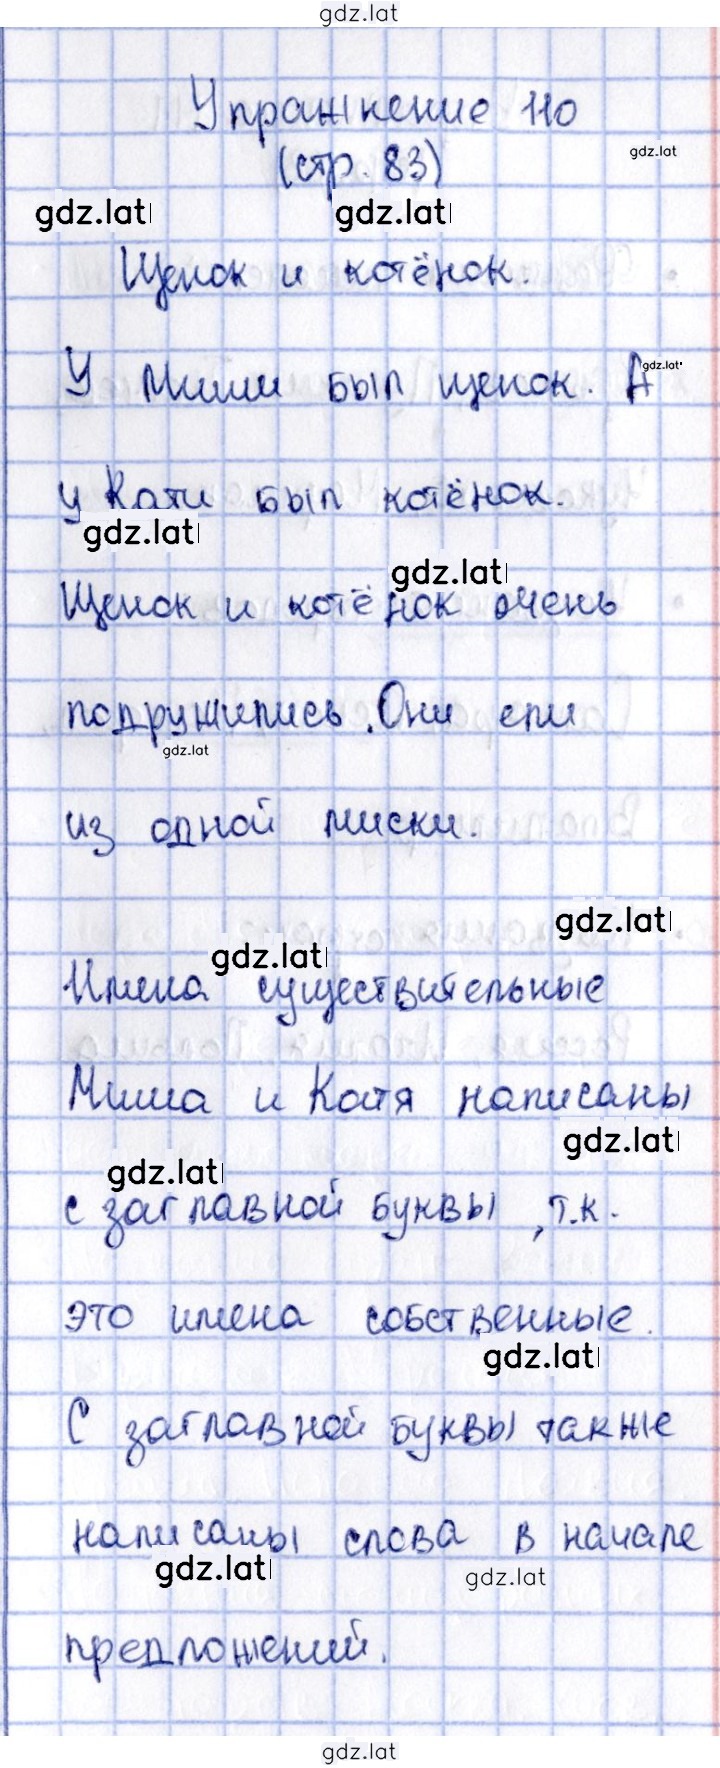 gdz.lat
Упражнение 110
(стр. 83)
gdz.lat
gdz.lat
gdz.lat
Щенок и котёнок.
У Миши был щенок. А
gdz.lat
у Кати был котёнок.
gdz.lat
gdz.lat
Щенок и котёнок очень
подружились. Они ели
gdz.lat
из одной миски.
gdz.lat
gdz.lat
Имена существительные
Миша и Катя написаны
gdz.lat
gdz.lat
с заглавной буквы, т.к.
это имена собственные.
gdz.lat
С заглавной буквы также
написаны слова в начале
gdz.lat
gdz.lat
предложений.
gdz.lat